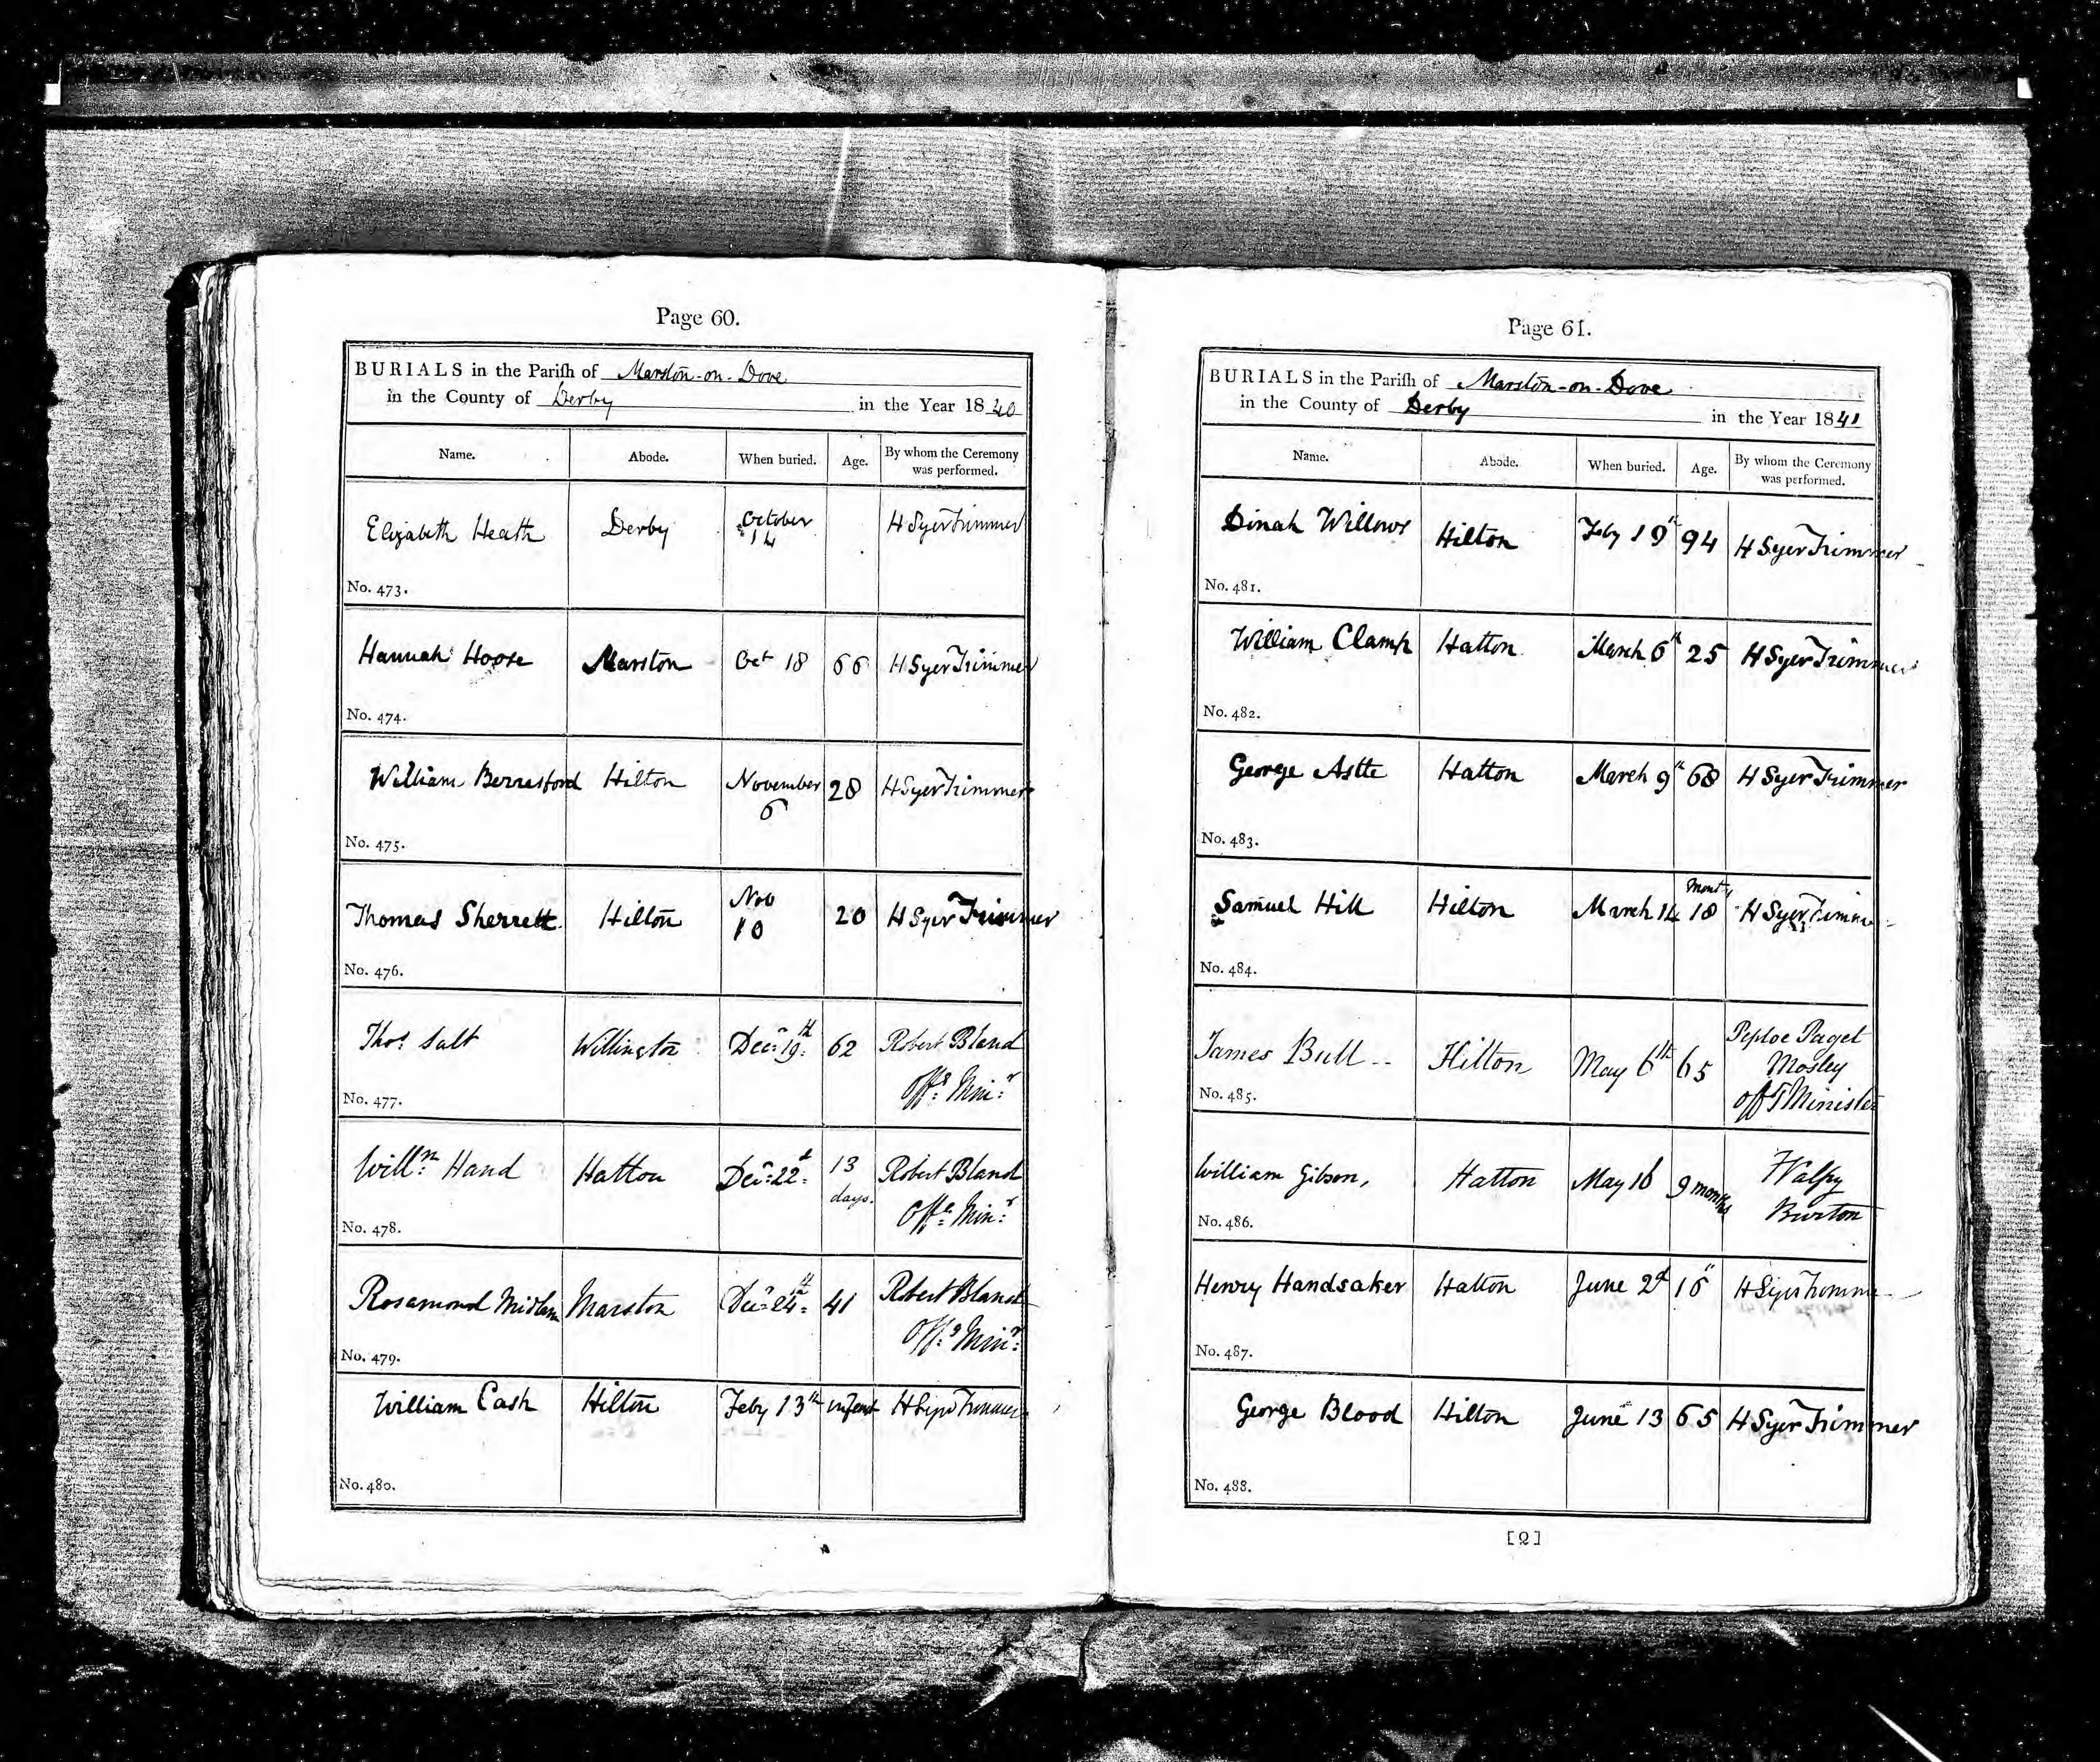 Page 60.
BURIALS in the Parish of Marston-on-Dove
in the County of Derby in the Year 1840
Name. Abode. When buried. Age. By whom the Ceremony was performed.
Elizabeth Heath Derby October 14 H Syer Trimmer
No. 473.
Hannah Hoose Marston Oct 18 66 H Syer Trimmer
No. 474.
William Berresford Hilton November 6 28 H Syer Trimmer
No. 475.
Thomas Sherrett Hilton Nov 10 20 H Syer Trimmer
No. 476.
Thos. Salt Willington Decr. 19th. 62 Robert Bland
Offg. Minr.
No. 477.
Willm. Hand Hatton Decr. 22d. 13 days. Robert Bland
Offg. Minr.
No. 478.
Rosamond Marston Decr. 24th. 41 Robert Bland
Offg. Minr.
No. 479.
William Cash Hilton Feby 13th infant H Syer Trimmer
No. 480.
Page 61.
BURIALS in the Parish of Marston-on-Dove
in the County of Derby in the Year 1841
Name. Abode. When buried. Age. By whom the Ceremony was performed.
Dinah Willows Hilton Feby 19th 94 H Syer Trimmer
No. 481.
William Clamp Hatton March 6th 25 H Syer Trimmer
No. 482.
George Astte Hatton March 9th 68 H Syer Trimmer
No. 483.
Samuel Hill Hilton March 14 18 H Syer Trimmer
No. 484.
James Bull Hilton May 6th 65 Peploe Paget
Mosley
offg Minister
No. 485.
William Gibson, Hatton May 16 9 months
Burton
No. 486.
Henry Handsaker Hatton June 2d 16 H Syer Trimmer
No. 487.
George Blood Hilton June 13 65 H Syer Trimmer
No. 488.